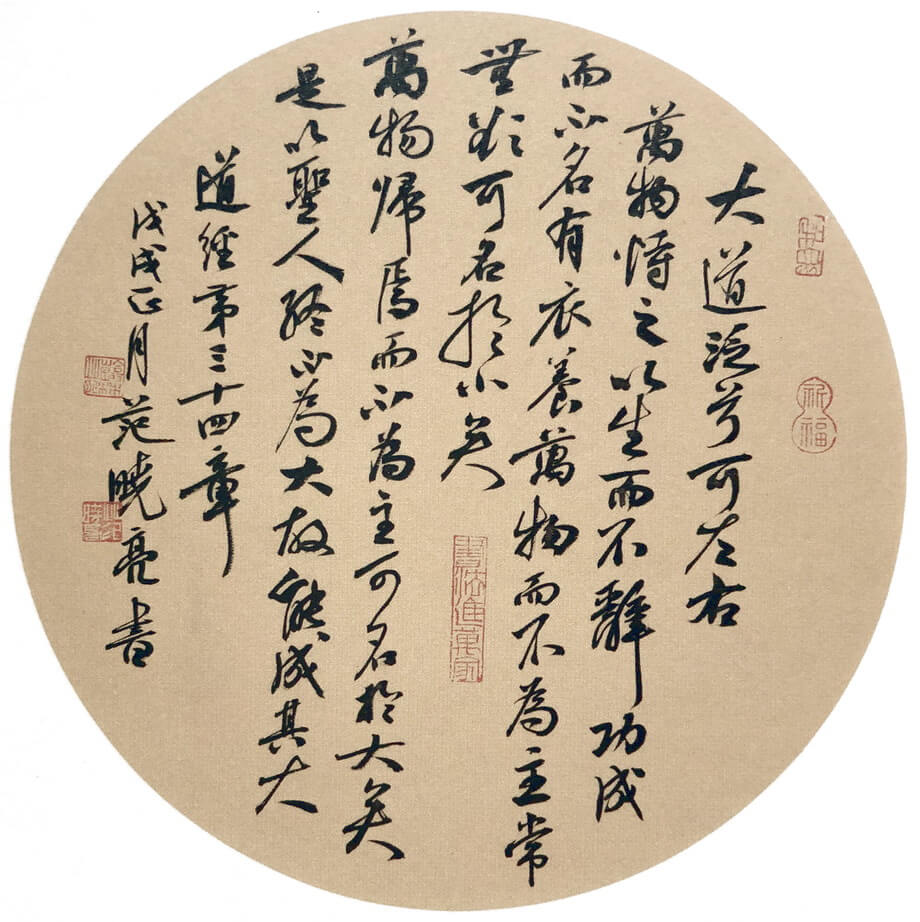 大道泛兮可左右
萬物恃之以生而不辭功成
而不名有衣養萬物而不為主常
無欲可名於小矣
萬物歸焉而不為主可名於大矣
是以聖人終不為大故能成其大
道經第三十四章
戊戌正月范曉亮書
祈福
書法進萬家